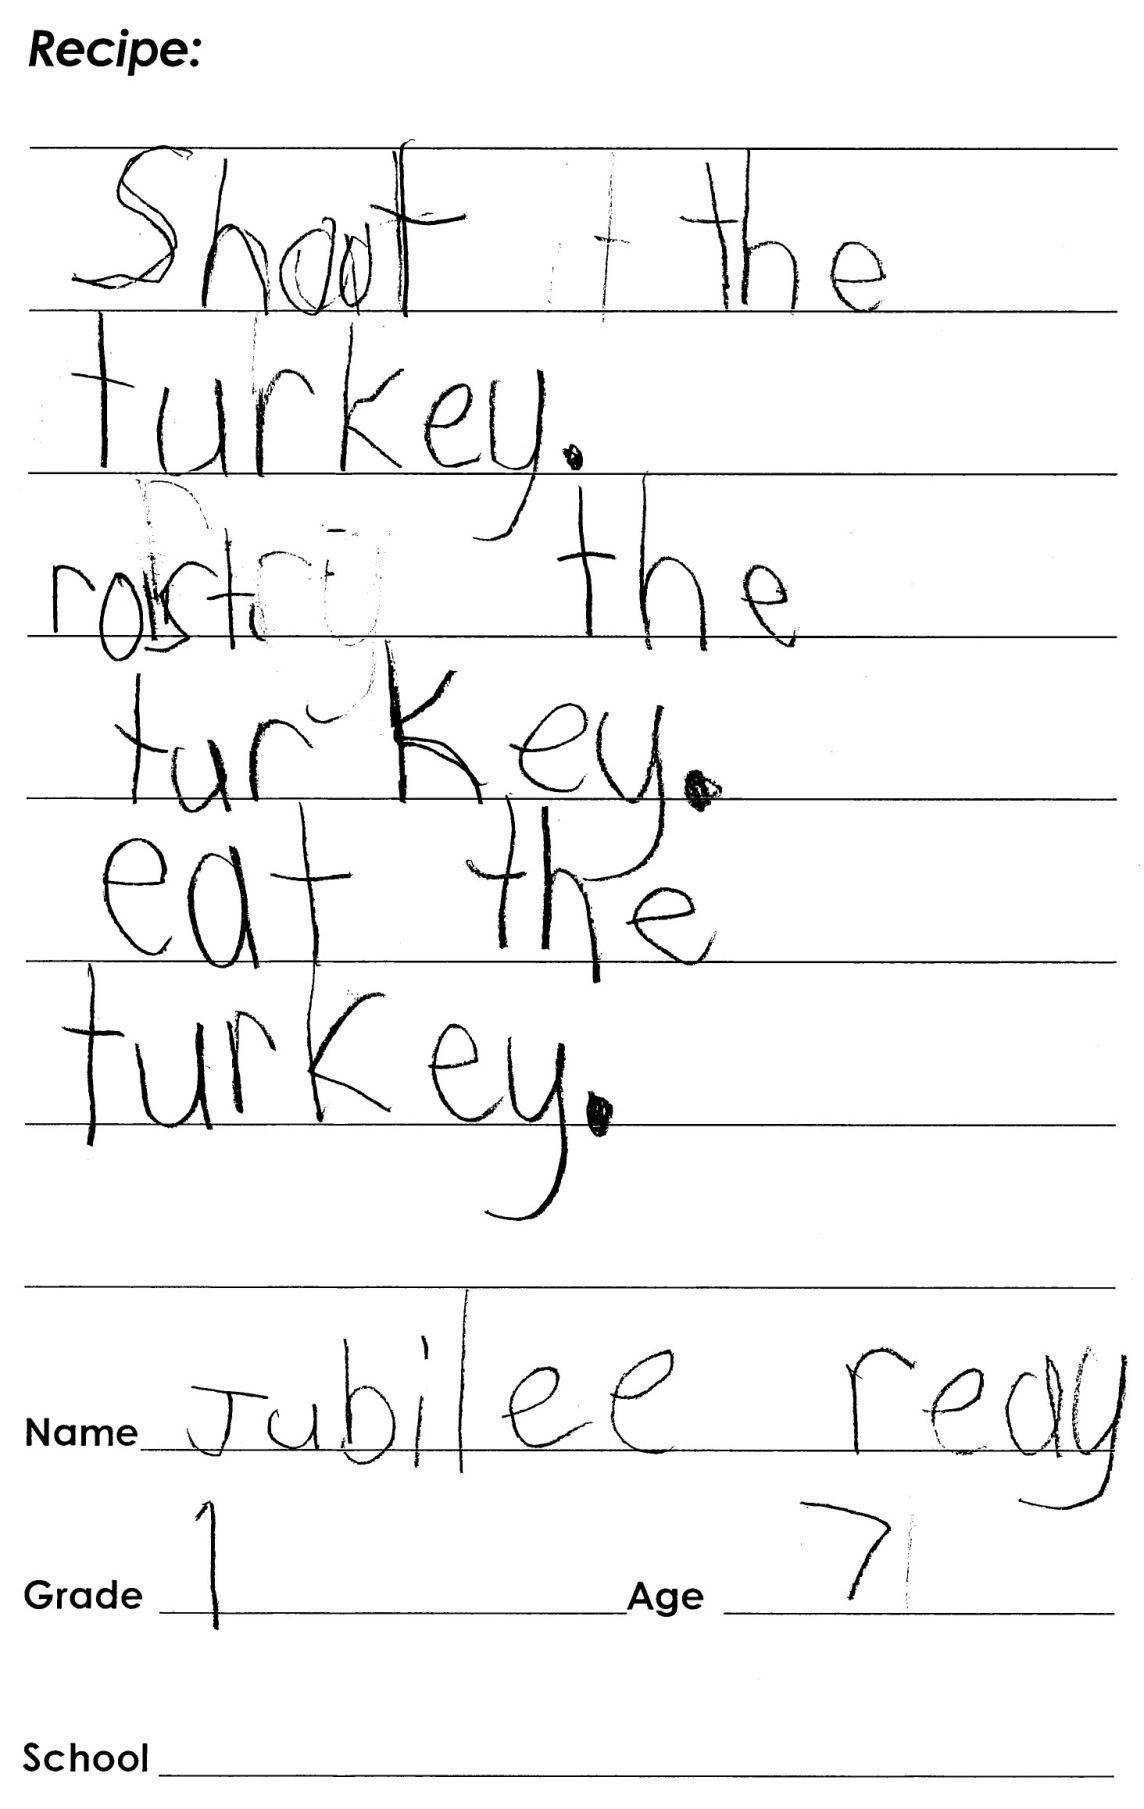 Recipe:
Shoot the
turkey.
rost the
turkey.
eat the
turkey.
Name Jubilee reay
Grade 1 Age 7
School